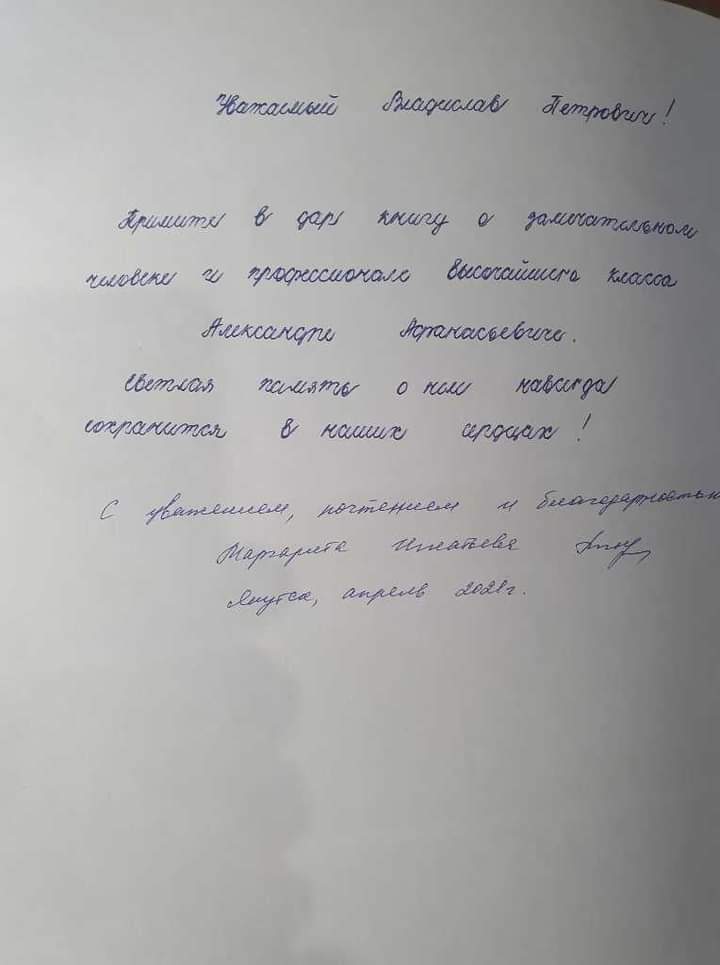 Уважаемый Владислав Петрович!
Примите в дар книгу о замечательном
человеке и профессионале высочайшего класса
Александре Афанасьевиче.
Светлая память о нем навсегда
сохранится в наших сердцах!
С уважением, почтением и благодарностью
Маргарита Игнатьева
Якутск, апрель 2021г.